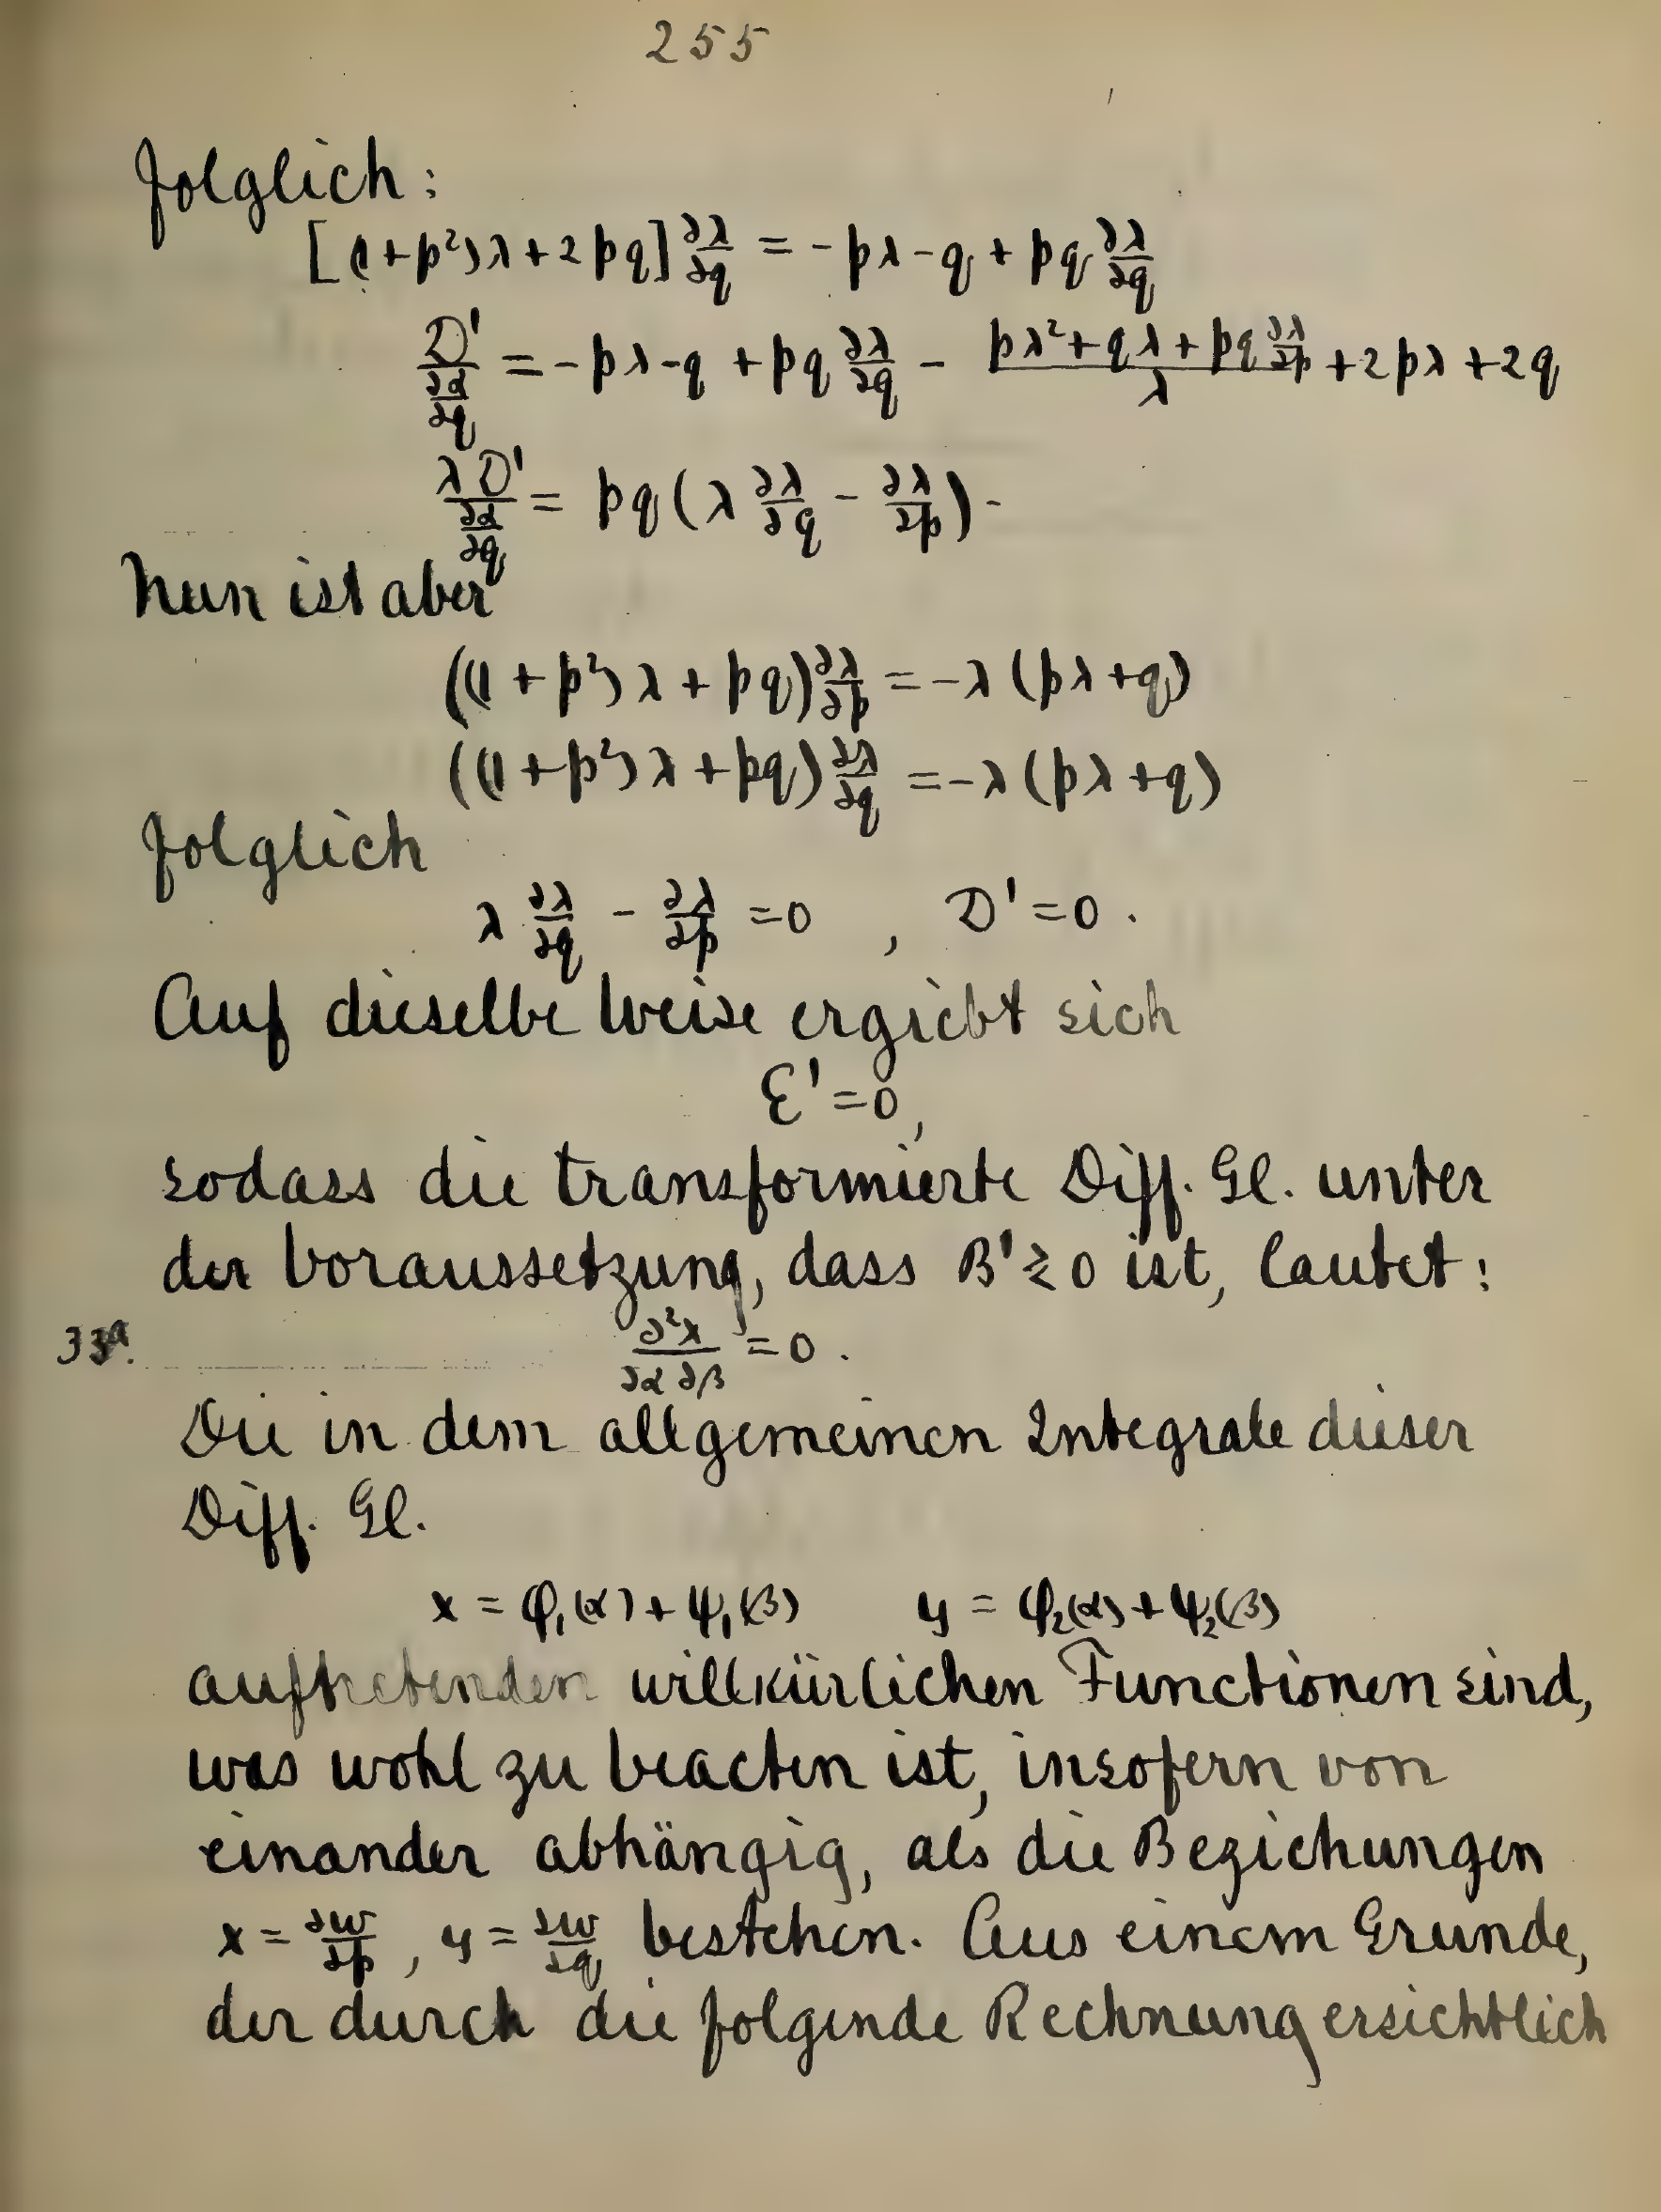 255
folglich:
[(1+p²)λ+2pq] ∂λ/∂q = -pλ-q + pq ∂λ/∂q
D'/(∂α/∂q) = -pλ-q + pq ∂λ/∂q - (pλ²+qλ+pq ∂λ/∂p)/λ +2pλ +2q
λD'/(∂α/∂q) = pq(λ ∂λ/∂q - ∂λ/∂p)-
Nun ist aber
((1+p²)λ+pq) ∂λ/∂p = -λ(pλ+q)
((1+p²)λ+pq) ∂λ/∂q = -λ(pλ+q)
folglich
λ ∂λ/∂q - ∂λ/∂p =0 , D'=0.
Auf dieselbe Weise ergiebt sich
E'=0,
sodass die transformierte Diff. Gl. unter
der Voraussetzung, dass B'≷0 ist, lautet:
33a. ∂²x/∂α∂β =0.
Die in dem allgemeinen Integrale dieser
Diff. Gl.
x = φ₁(α)+ψ₁(β) y = φ₂(α)+ψ₂(β)
auftretenden willkürlichen Functionen sind,
was wohl zu beacten ist, insofern von
einander abhängig, als die Beziehungen
x = ∂w/∂p, y = ∂w/∂q bestehen. Aus einem Grunde,
der durch die folgende Rechnung ersichtlich